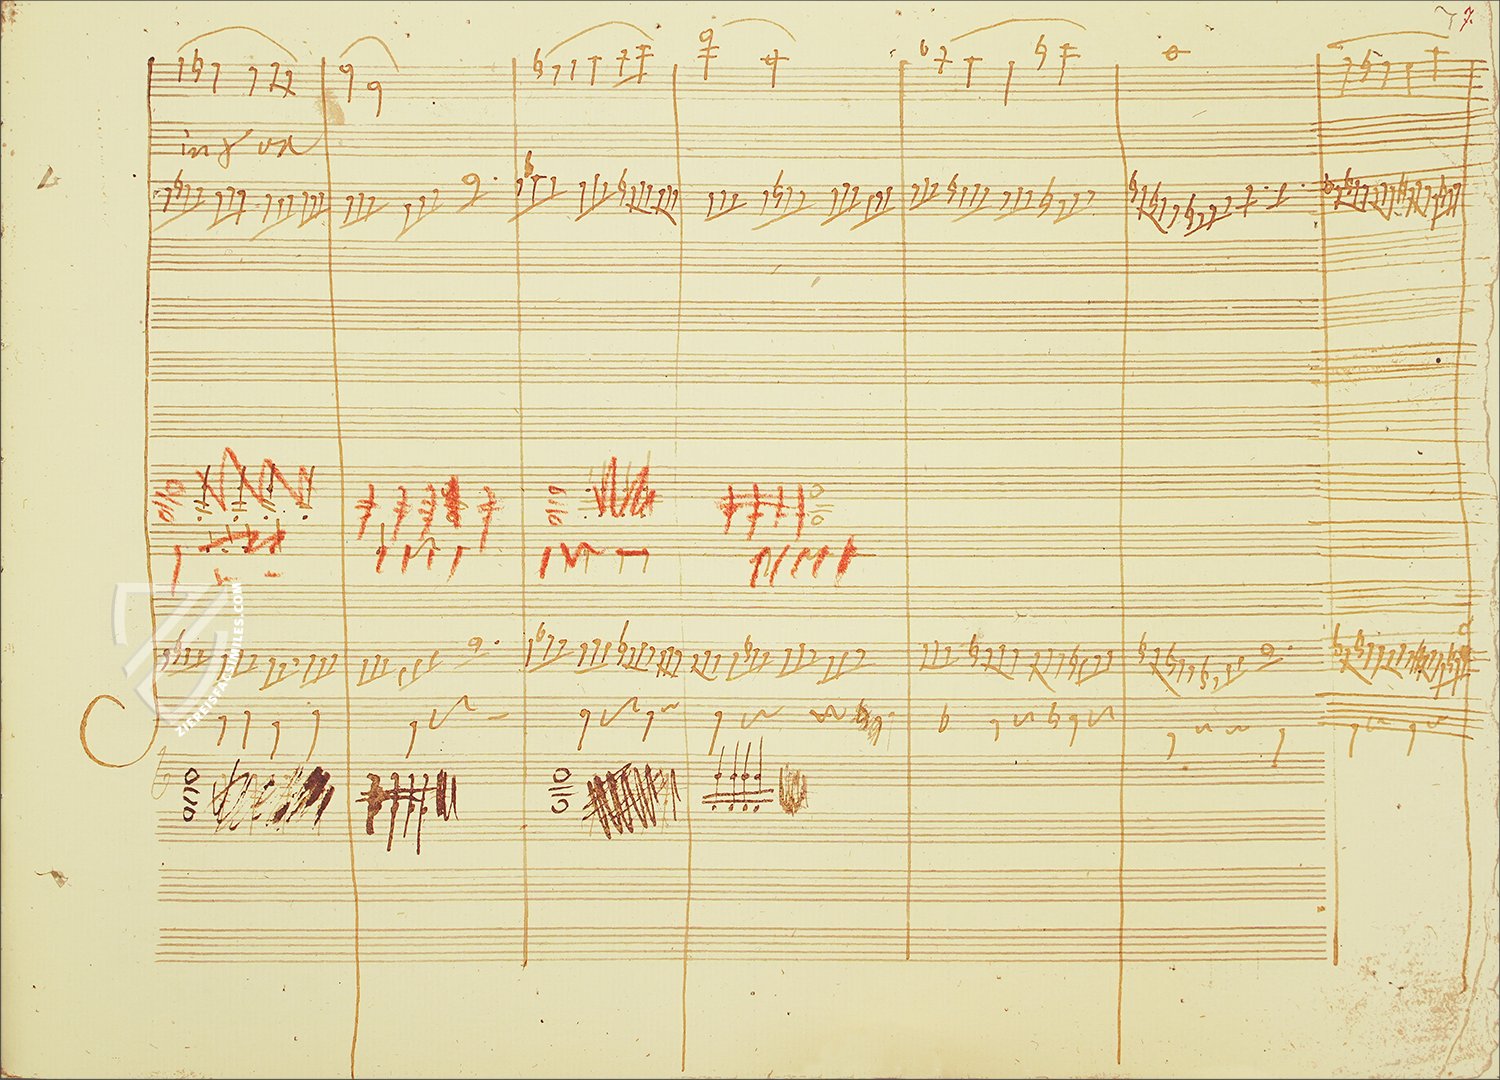 7.
in 8va
ZIEREISFACSIMILES.COM